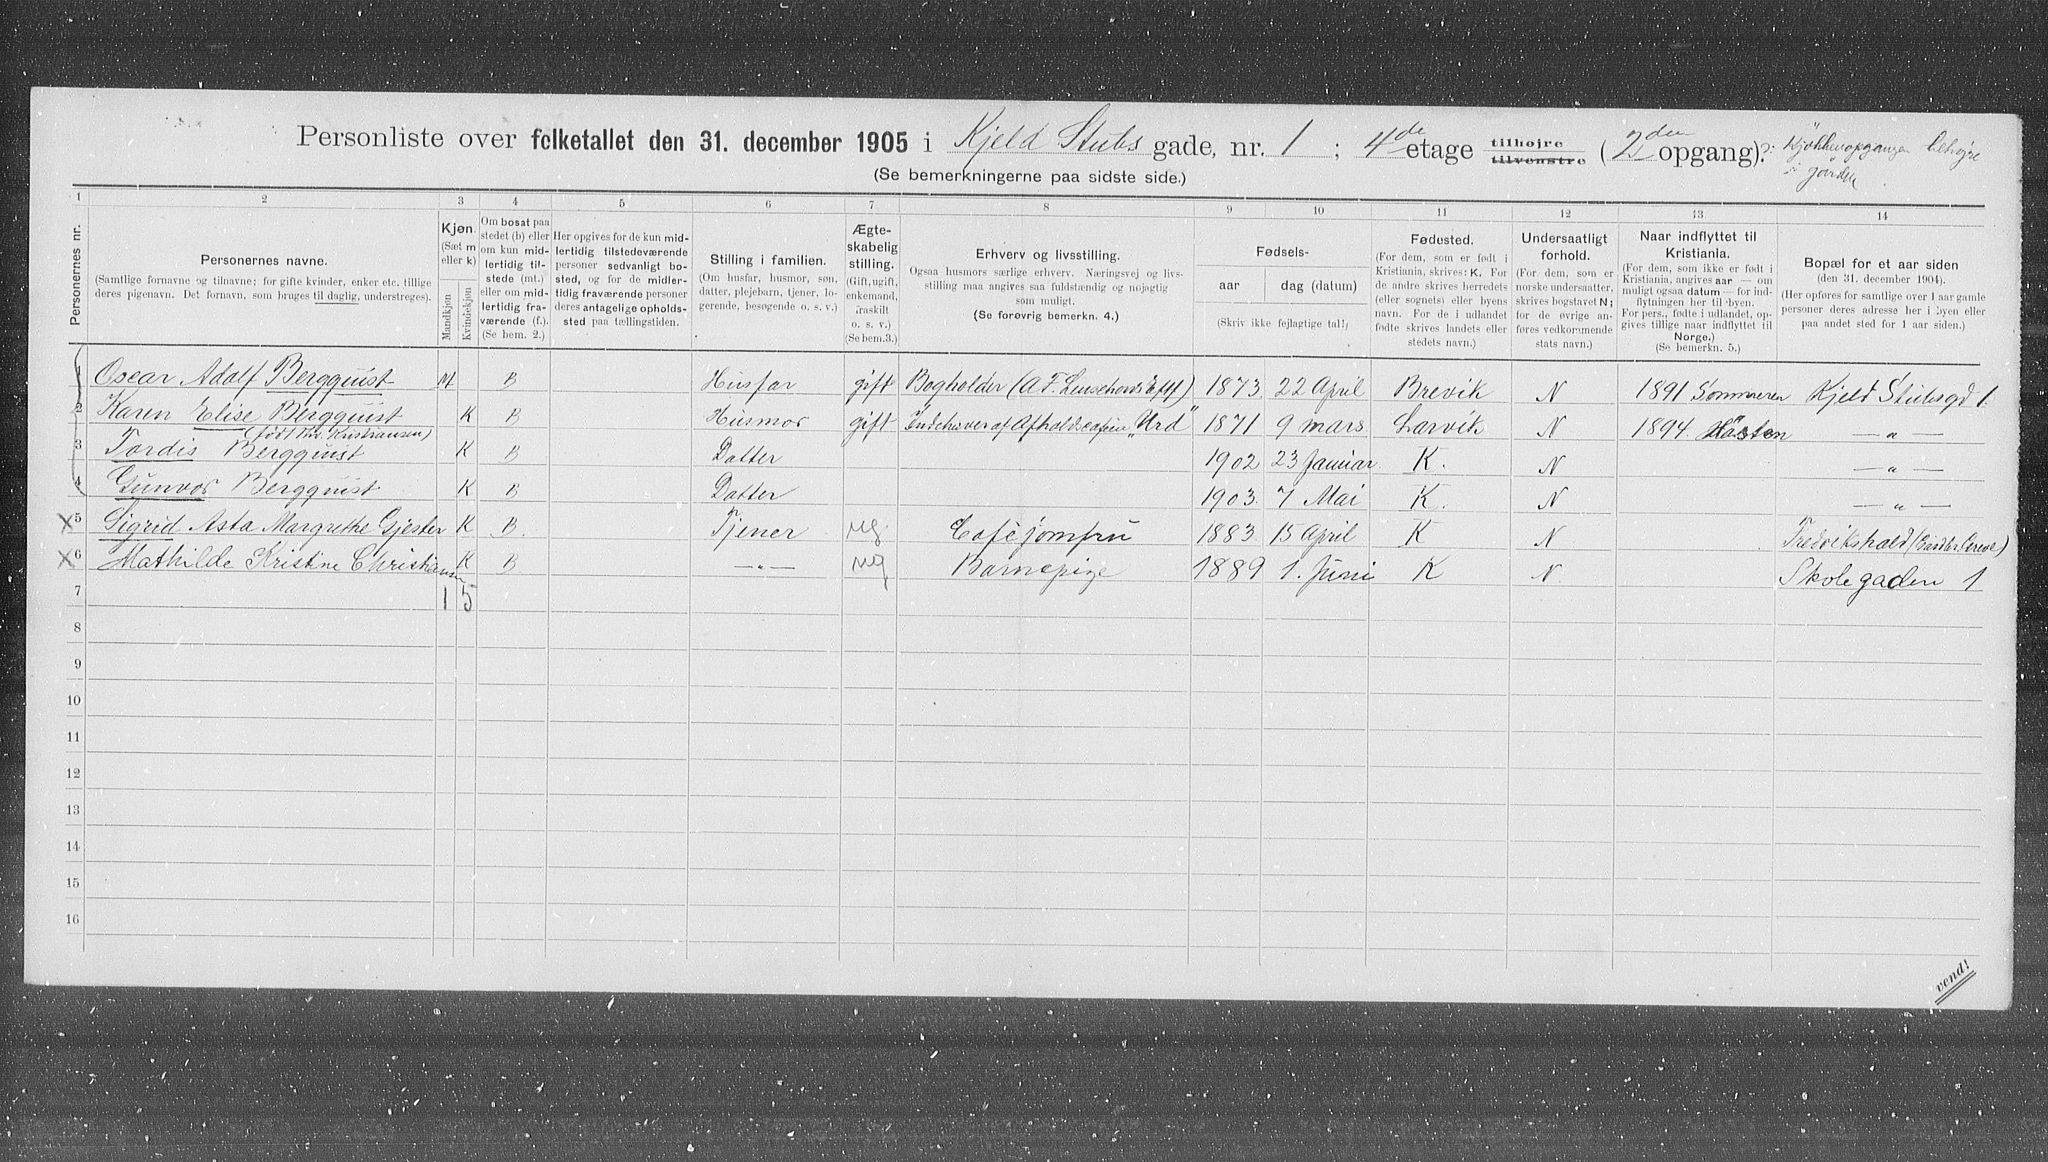 Personliste over folketallet den 31. december 1905 i Kjeld Stubs gade, nr. 1 ; 4de etage tilhøjre tilvenstre (2den opgang)? Kjøkkenopgangen tilhøjre i gården
(Se bemerkningerne paa sidste side.)
1 2 3 4 5 6 7 8 9 10 11 12 13 14
Personernes nr.
Personernes navne.
(Samtlige fornavne og tilnavne; for gifte kvinder, enker etc. tillige deres pigenavn. Det fornavn, som bruges til daglig, understreges).
Kjøn.
(Sæt m eller k)
Mandkjøn
Kvindekjøn
Om bosat paa stedet (b) eller om kun midlertidig tilstede (mt.) eller om midlertidig fraværende (f.). (Se bem. 2.)
Her opgives for de kun midlertidig tilstedeværende personer sedvanlig bosted, og for de midlertidig fraværende personer deres antagelige opholdssted paa tællingstiden.
Stilling i familien.
(Om husfar, husmor, søn, datter, plejebarn, tjener, logerende, besøgende o. s. v.)
Ægteskabelig stilling.
(Gift, ugift, enkemand, fraskilt o. s. v.)
(Se bem. 3.)
Erhverv og livsstilling.
Ogsaa husmors særlige erhverv. Næringsvej og livsstilling maa angives saa fuldstændig og nøjagtig som muligt.
(Se forøvrig bemerkn. 4.)
Fødsels-
aar
dag (datum)
(Skriv ikke fejlagtige tal!)
Fødested.
(For dem, som er født i Kristiania, skrives: K. For de andre skrives herredets (eller sognets) eller byens navn. For de i udlandet fødte skrives landets eller stedets navn.)
Undersaatligt forhold.
(For dem, som er norske undersaatter, skrives bogstavet N; for de øvrige anføres vedkommende stats navn.)
Naar indflyttet til Kristiania.
(For dem, som ikke er født i Kristiania, angives aar — om muligt ogsaa datum — for indflytningen her til byen. For pers., fødte i udlandet, opgives tillige naar indflyttet til Norge.)
(Se bemerkn. 5.)
Bopæl for et aar siden
(den 31. december 1904).
(Her opføres for samtlige over 1 aar gamle personer deres adresse her i byen eller paa andet sted for 1 aar siden.)
1 Oscar Adolf Bergquist M B Husfar gift Bogholder (A. F. Eftf) 1873 22 April Brevik N 1891 Sommeren Kjeld Stubsgd 1.
2 Karen Elise Bergquist K B Husmor gift Indehaver af Afholdscafeen "Urd" 1871 9 mars Larvik N 1894 Høsten — " —
(født Kristiansen)
3 Tordis Bergquist K B Datter 1902 23 Januar K. N — " —
4 Gunvor Bergquist K B Datter 1903 7 Mai K. N — " —
X 5 Sigrid Asta Margrethe Gjester K B. Tjener ug Caféjomfru 1883 13 April K N Fredrikshald
X 6 Mathilde Kristine Christiansen K B — " — ug Barnepige 1889 1. Juni K N Skolegaden 1
7 1 5
8
9
10
11
12
13
14
15
16
vend!